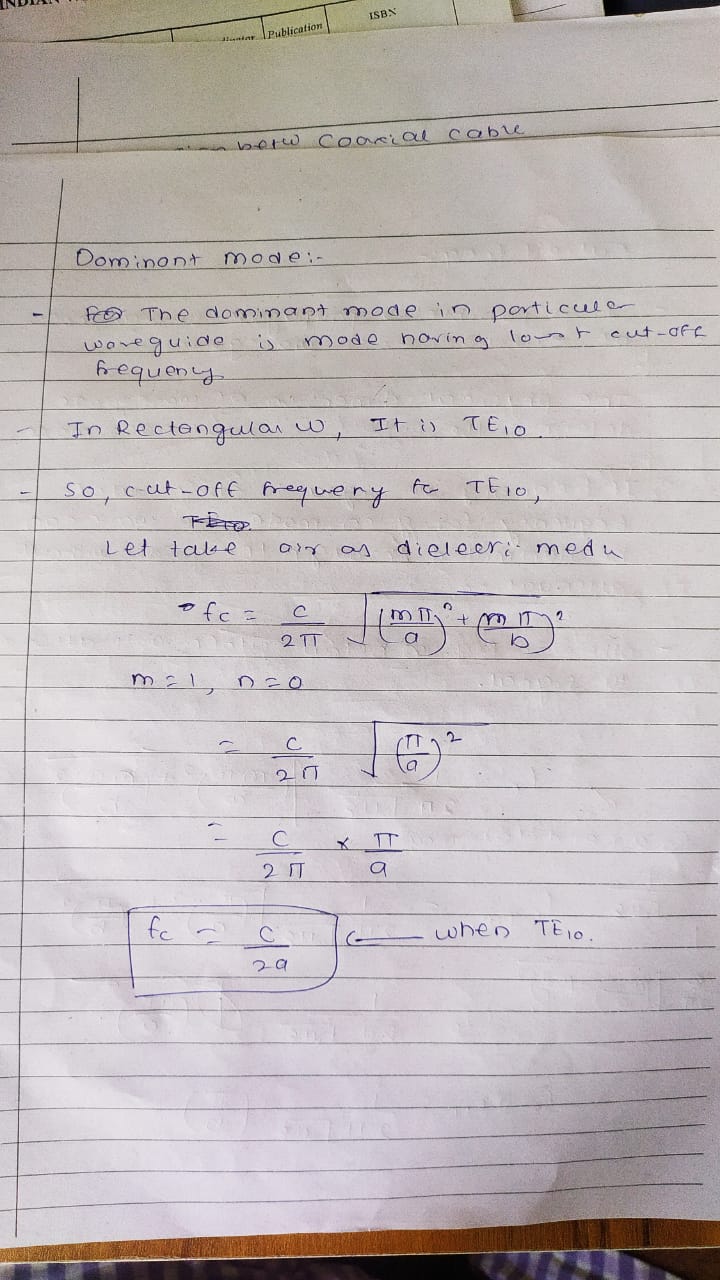 ISBN
Publication
betw coaxial cable
Dominant mode:-
- The dominant mode in particular
waveguide is mode having lowst cut-off
frequency
- In Rectangular w, It is TE10.
- So, cut-off frequeny fc TE10,
TE10.
Let take air as dielecri medu
fc = c/2π √((mπ/a)² + (mπ/b)²)
m=1, n=0
= c/2π √(π/a)²
= c/2π × π/a
fc = c/2a ← when TE10.